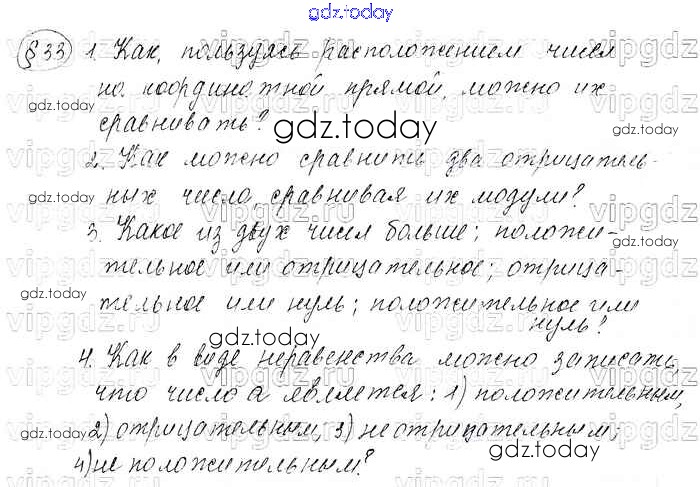 gdz.today
§33 1. Как, пользуясь расположением чисел
на координатной прямой, можно их
сравнивать?
2. Как можно сравнить два отрицатель-
ных число, сравнивая их модули?
3. Какое из двух чисел больше; положи-
тельное или отрицательное; отрица-
тельное или нуль; положительное или
нуль?
4. Как в виде неравенства можно записать,
что число а является: 1) положительным,
2) отрицательным, 3) неотрицательным;
4) не положительным?
vipgdz.ru
gdz.today
gdz.today
gdz.today
gdz.today
gdz.today
gdz.today
gdz.today
gdz.today
gdz.today